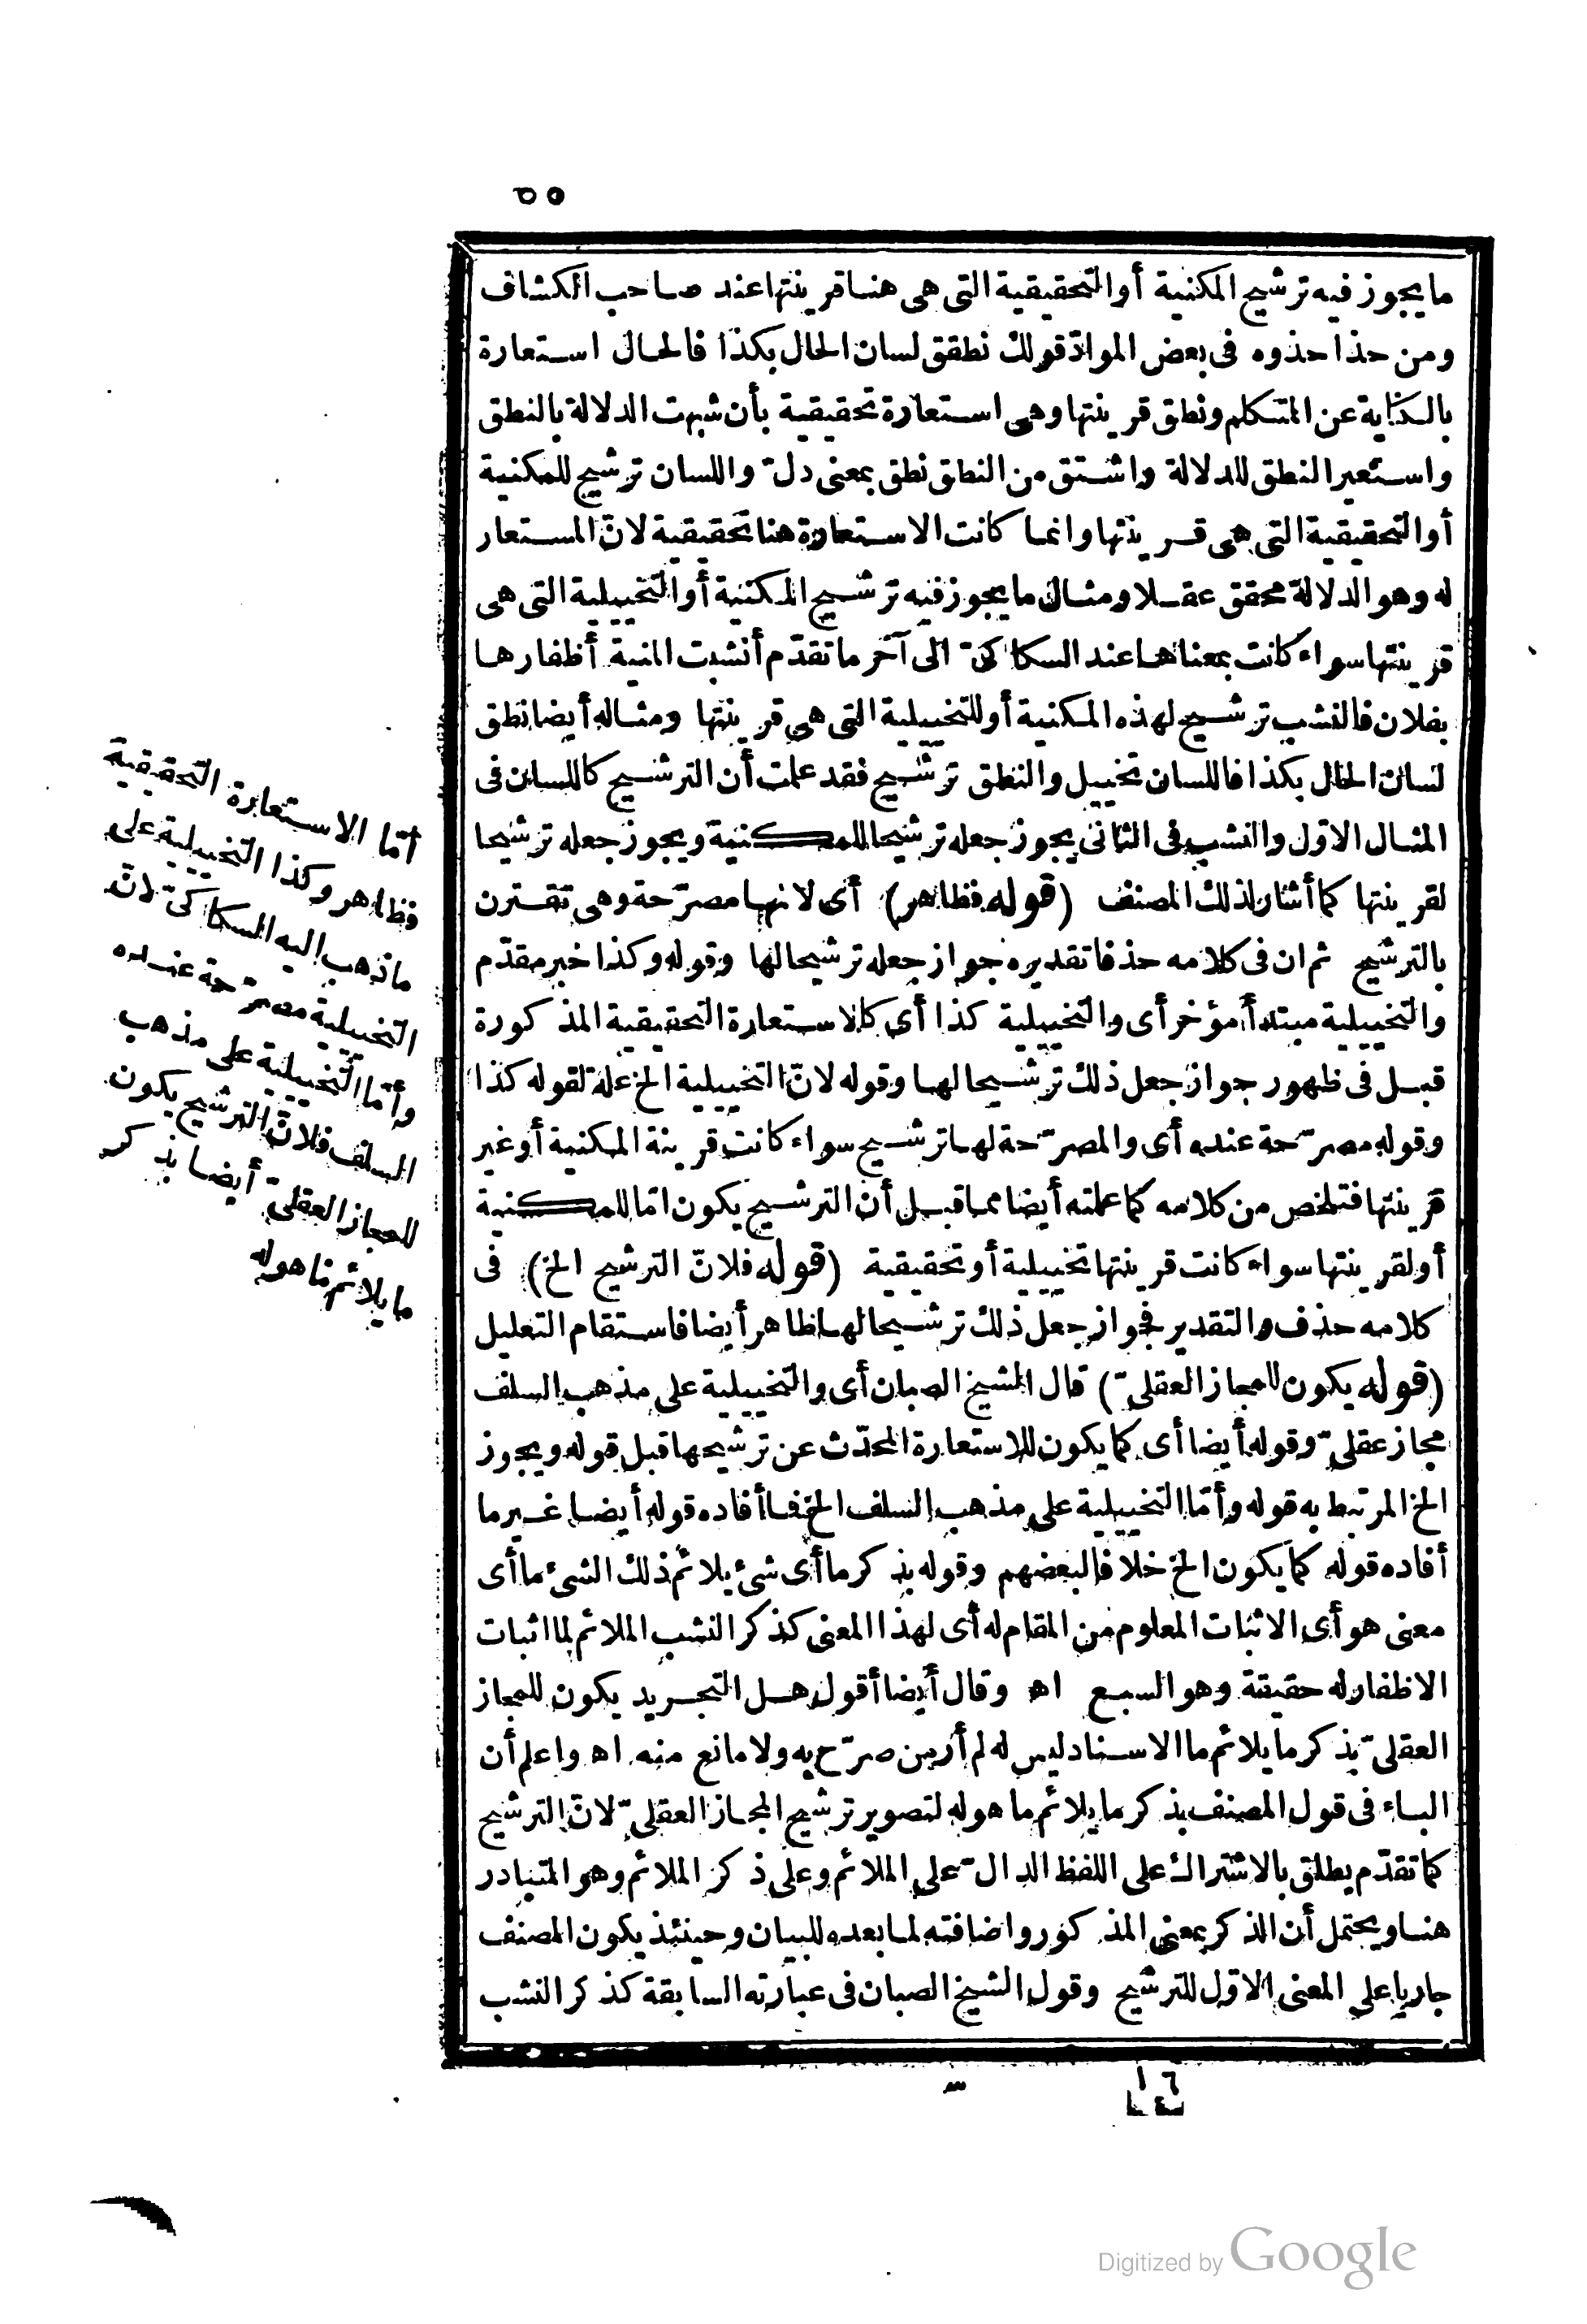 ٥٥
ما يجوز فيه ترشيح المكنية أو التحقيقية التى هى هنا قرينتها عند صاحب الكشاف
ومن حذا حذوه فى بعض الموادّ قولك نطقق لسان الحال بكذا فالحال استعارة
بالكناية عن المتكلم ونطق قرينتها وهى استعارة تحقيقية بأن شبهت الدلالة بالنطق
واستعير النطق للدلالة واشتق من النطق نطق بمعنى دلّ واللسان ترشيح للمكنية
أو التحقيقية التى هى قرينتها وانما كانت الاستعارة هنا تحقيقية لانّ المستعار
له وهو الدلالة محقق عقلا ومثال ما يجوز فيه ترشيح المكنية أو التخييلية التى هى
قرينتها سواء كانت بمعناها عند السكاكىّ الى آخر ما تقدّم أنشبت المنية أظفارها
بفلان فالنشب ترشيح لهذه المكنية أو للتخييلية التى هى قرينتها ومثاله أيضا نطق
لسان الحال بكذا فاللسان تخييل والنطق ترشيح فقد علمت أن الترشيح كاللسان فى
المثال الاوّل والنشب فى الثانى يجوز جعله ترشيحا للمكنية ويجوز جعله ترشيحا
لقرينتها كما أشار لذلك المصنف (قوله فظاهر) أى لانها مصرّحة وهى تقترن
بالترشيح ثم ان فى كلامه حذفا تقديره جواز جعله ترشيحا لها وقوله وكذا خبر مقدّم
والتخييلية مبتدأ مؤخر أى والتخييلية كذا أى كالاستعارة التحقيقية المذكورة
قبل فى ظهور جواز جعل ذلك ترشيحا لها وقوله لانّ التخييلية الخ علة لقوله كذا
وقوله مصرّحة عنده أى والمصرّحة لها ترشيح سواء كانت قرينة المكنية أو غير
قرينتها فتلخص من كلامه كما علمته أيضا مما قبل أن الترشيح يكون امّا للمكنية
أو لقرينتها سواء كانت قرينتها تخييلية أو تحقيقية (قوله فلانّ الترشيح الخ) فى
كلامه حذف والتقدير فجواز جعل ذلك ترشيحا لها ظاهر أيضا فاستقام التعليل
(قوله يكون للمجاز العقلىّ) قال الشيخ الصبان أى والتخييلية على مذهب السلف
مجاز عقلىّ وقوله أيضا أى كما يكون للاستعارة المحدّث عن ترشيحها قبل قوله ويجوز
الخ المرتبط به قوله وأمّا التخييلية على مذهب السلف الخ فما أفاده قوله أيضا غير ما
أفاده قوله كما يكون الخ خلافا لبعضهم وقوله بذكر ما أى شئ يلائم ذلك الشئ ما أى
معنى هو أى الاثبات المعلوم من المقام له أى لهذا المعنى كذكر النشب الملائم لما اثبات
الاظفار له حقيقة وهو السبع اه وقال أيضا أقول هل التجريد يكون للمجاز
العقلىّ بذكر ما يلائم ما الاسناد ليس له لم أر من صرّح به ولا مانع منه اه واعلم أن
الباء فى قول المصنف بذكر ما يلائم ما هو له لتصوير ترشيح المجاز العقلىّ لانّ الترشيح
كما تقدّم يطلق بالاشتراك على اللفظ الدالّ على الملائم وعلى ذكر الملائم وهو المتبادر
هنا ويحتمل أن الذكر بمعنى المذكور واضافته لما بعده للبيان وحينئذ يكون المصنف
جاريا على المعنى الاوّل للترشيح وقول الشيخ الصبان فى عبارته السابقة كذكر النشب
أمّا الاستعارة التحقيقية
فظاهر وكذا التخييلية على
ما ذهب اليه السكاكىّ لانّ
التخييلية مصرّحة عنده
وأمّا التخييلية على مذهب
السلف فلانّ الترشيح يكون
للمجاز العقلىّ أيضا بذكر
ما يلائم ما هو له
Digitized by Google